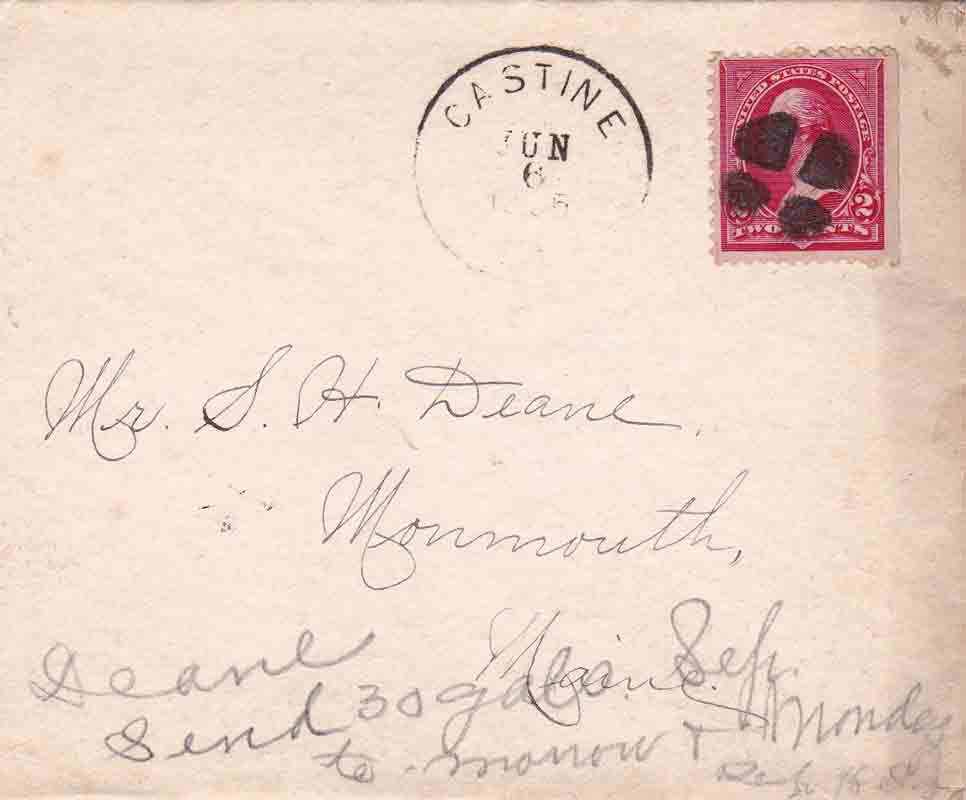 CASTINE
JUN
6
UNITED STATES POSTAGE
2
TWO CENTS
Mr. S. H. Deane,
Monmouth,
Maine.
Deane
Send 30 gals
to-morrow + Monday